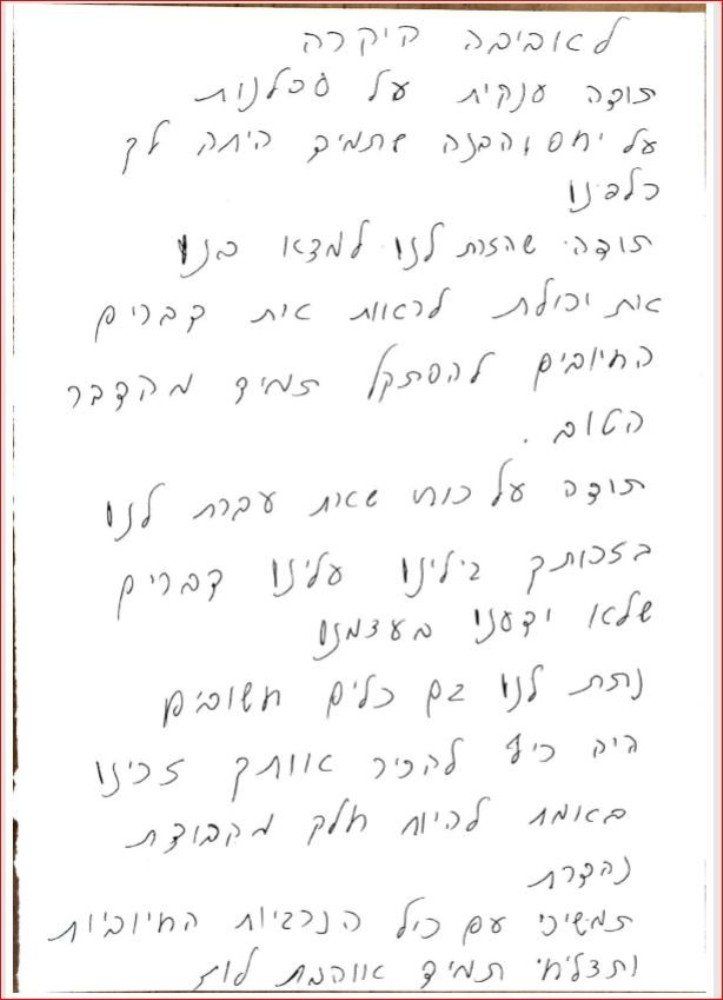 לאביבה היקרה
תודה ענקית על סבלנות
על יחס והבנה שתמיד היתה לך
כלפנו
תודה שהזרת לנו למצאו בנו
את יכולת לראות אית דברים
החיובים להסתקל תמיד מהדבר
הטוב.
תודה על כוח שאית עברת לנו
בזכותך גילינו עלינו דברים
שלא ידענו בעצמנו
נתת לנו גם כלים חשובים
היה כיף להכיר אוותך זכינו
באומת להיות חלק מקבוצת
נהדרת
תמשיכי עם כול הנרגיות החיוביות
ותצליחי תמיד אוהבת לוז